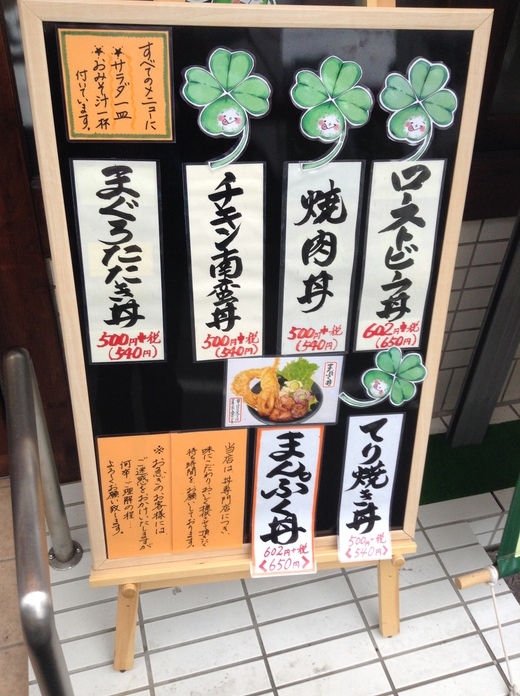 すべてのメニューに
★サラダ一皿
★おみそ汁一杯
付いています。
ローストビーフ丼
602円+税
(650円)
焼肉丼
500円+税
(540円)
チキン南蛮丼
500円+税
(540円)
まぐろたたき丼
500円+税
(540円)
まんぷく丼
てり焼き丼
500円+税
<540円>
まんぷく丼
602円+税
<650円>
当店は丼専門店につき、
味にこだわりおいしく提供させて頂く
待ち時間をお願いしております。
※お急ぎのお客様には
ご迷惑をおかけいたしますが
何卒ご理解の程…
よろしくお願い致します。